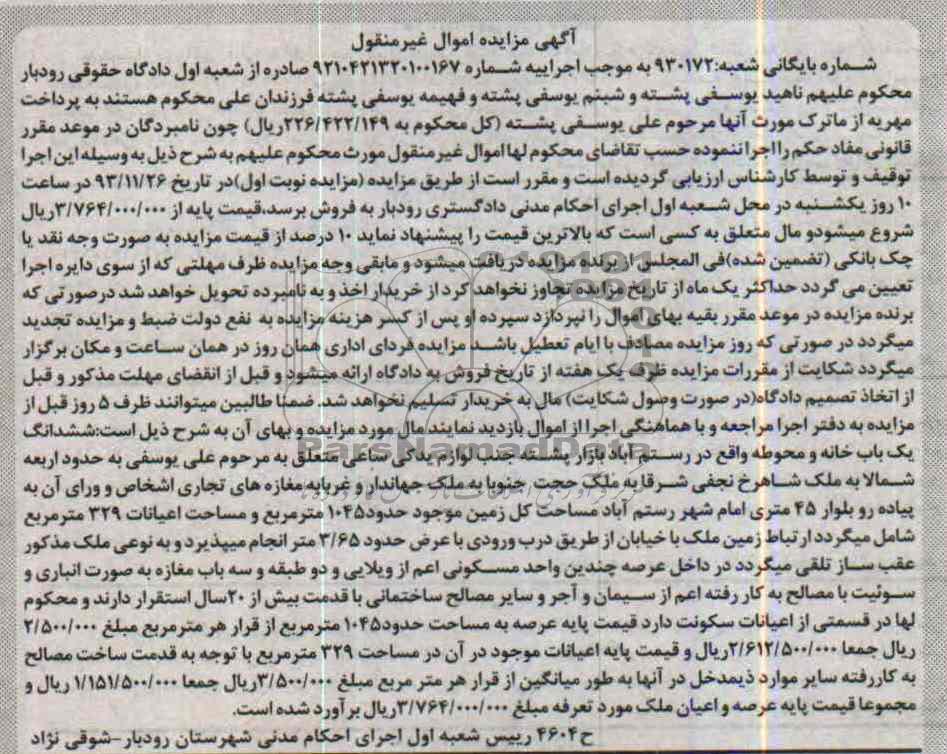 آگهی مزایده اموال غیرمنقول
شماره بایگانی شعبه:۹۳۰۱۷۲ به موجب اجراییه شماره ۹۲۱۰۴۲۱۳۲۰۱۰۰۱۶۷ صادره از شعبه اول دادگاه حقوقی رودبار
محکوم علیهم ناهید یوسفی پشته و شبنم یوسفی پشته و فهیمه یوسفی پشته فرزندان علی محکوم هستند به پرداخت
مهریه از ماترک مورث آنها مرحوم علی یوسفی پشته (کل محکوم به ۲۲۶/۴۲۲/۱۴۹ریال) چون نامبردگان در موعد مقرر
قانونی مفاد حکم رااجرا ننموده حسب تقاضای محکوم لها اموال غیرمنقول مورث محکوم علیهم به شرح ذیل به وسیله این اجرا
توقیف و توسط کارشناس ارزیابی گردیده است و مقرر است از طریق مزایده (مزایده نوبت اول)در تاریخ ۹۳/۱۱/۲۶ در ساعت
۱۰ روز یکشنبه در محل شعبه اول اجرای احکام مدنی دادگستری رودبار به فروش برسد،قیمت پایه از ۳/۷۶۴/۰۰۰/۰۰۰ریال
شروع میشودو مال متعلق به کسی است که بالاترین قیمت را پیشنهاد نماید ۱۰ درصد از قیمت مزایده به صورت وجه نقد یا
چک بانکی (تضمین شده)فی المجلس از برنده مزایده دریافت میشود و مابقی وجه مزایده ظرف مهلتی که از سوی دایره اجرا
تعیین می گردد حداکثر یک ماه از تاریخ مزایده تجاوز نخواهد کرد از خریدار اخذ و به نامبرده تحویل خواهد شد درصورتی که
برنده مزایده در موعد مقرر بقیه بهای اموال را نپردازد سپرده او پس از کسر هزینه مزایده به نفع دولت ضبط و مزایده تجدید
میگردد در صورتی که روز مزایده مصادف با ایام تعطیل باشد مزایده فردای اداری همان روز در همان ساعت و مکان برگزار
میگردد شکایت از مقررات مزایده ظرف یک هفته از تاریخ فروش به دادگاه ارائه میشود و قبل از انقضای مهلت مذکور و قبل
از اتخاذ تصمیم دادگاه(در صورت وصول شکایت) مال به خریدار تسلیم نخواهد شد. ضمنا طالبین میتوانند ظرف ۵ روز قبل از
مزایده به دفتر اجرا مراجعه و با هماهنگی اجرا از اموال بازدید نمایند مال مورد مزایده و بهای آن به شرح ذیل است:ششدانگ
یک باب خانه و محوطه واقع در رستم آباد بازار پشته جنب لوازم یدکی ساعی متعلق به مرحوم علی یوسفی به حدود اربعه
شمالا به ملک شاهرخ نجفی شرقا به ملک حجت جنوبا به ملک جهاندار و غربابه مغازه های تجاری اشخاص و ورای آن به
پیاده رو بلوار ۴۵ متری امام شهر رستم آباد مساحت کل زمین موجود حدود۱۰۴۵ مترمربع و مساحت اعیانات ۳۲۹ مترمربع
شامل میگردد ارتباط زمین ملک با خیابان از طریق درب ورودی با عرض حدود ۳/۶۵ متر انجام میپذیرد و به نوعی ملک مذکور
عقب ساز تلقی میگردد در داخل عرصه چندین واحد مسکونی اعم از ویلایی و دو طبقه و سه باب مغازه به صورت انباری و
سوئیت با مصالح به کار رفته اعم از سیمان و آجر و سایر مصالح ساختمانی با قدمت بیش از ۲۰سال استقرار دارند و محکوم
لها در قسمتی از اعیانات سکونت دارد قیمت پایه عرصه به مساحت حدود۱۰۴۵ مترمربع از قرار هر مترمربع مبلغ ۲/۵۰۰/۰۰۰
ریال جمعا ۲/۶۱۲/۵۰۰/۰۰۰ریال و قیمت پایه اعیانات موجود در آن در مساحت ۳۲۹ مترمربع با توجه به قدمت ساخت مصالح
به کاررفته سایر موارد ذیمدخل در آنها به طور میانگین از قرار هر متر مربع مبلغ ۳/۵۰۰/۰۰۰ریال جمعا ۱/۱۵۱/۵۰۰/۰۰۰ ریال و
مجموعا قیمت پایه عرصه و اعیان ملک مورد تعرفه مبلغ ۳/۷۶۴/۰۰۰/۰۰۰ریال برآورد شده است.
ح۴۶۰۴ رییس شعبه اول اجرای احکام مدنی شهرستان رودبار-شوقی نژاد
ParsNamadData